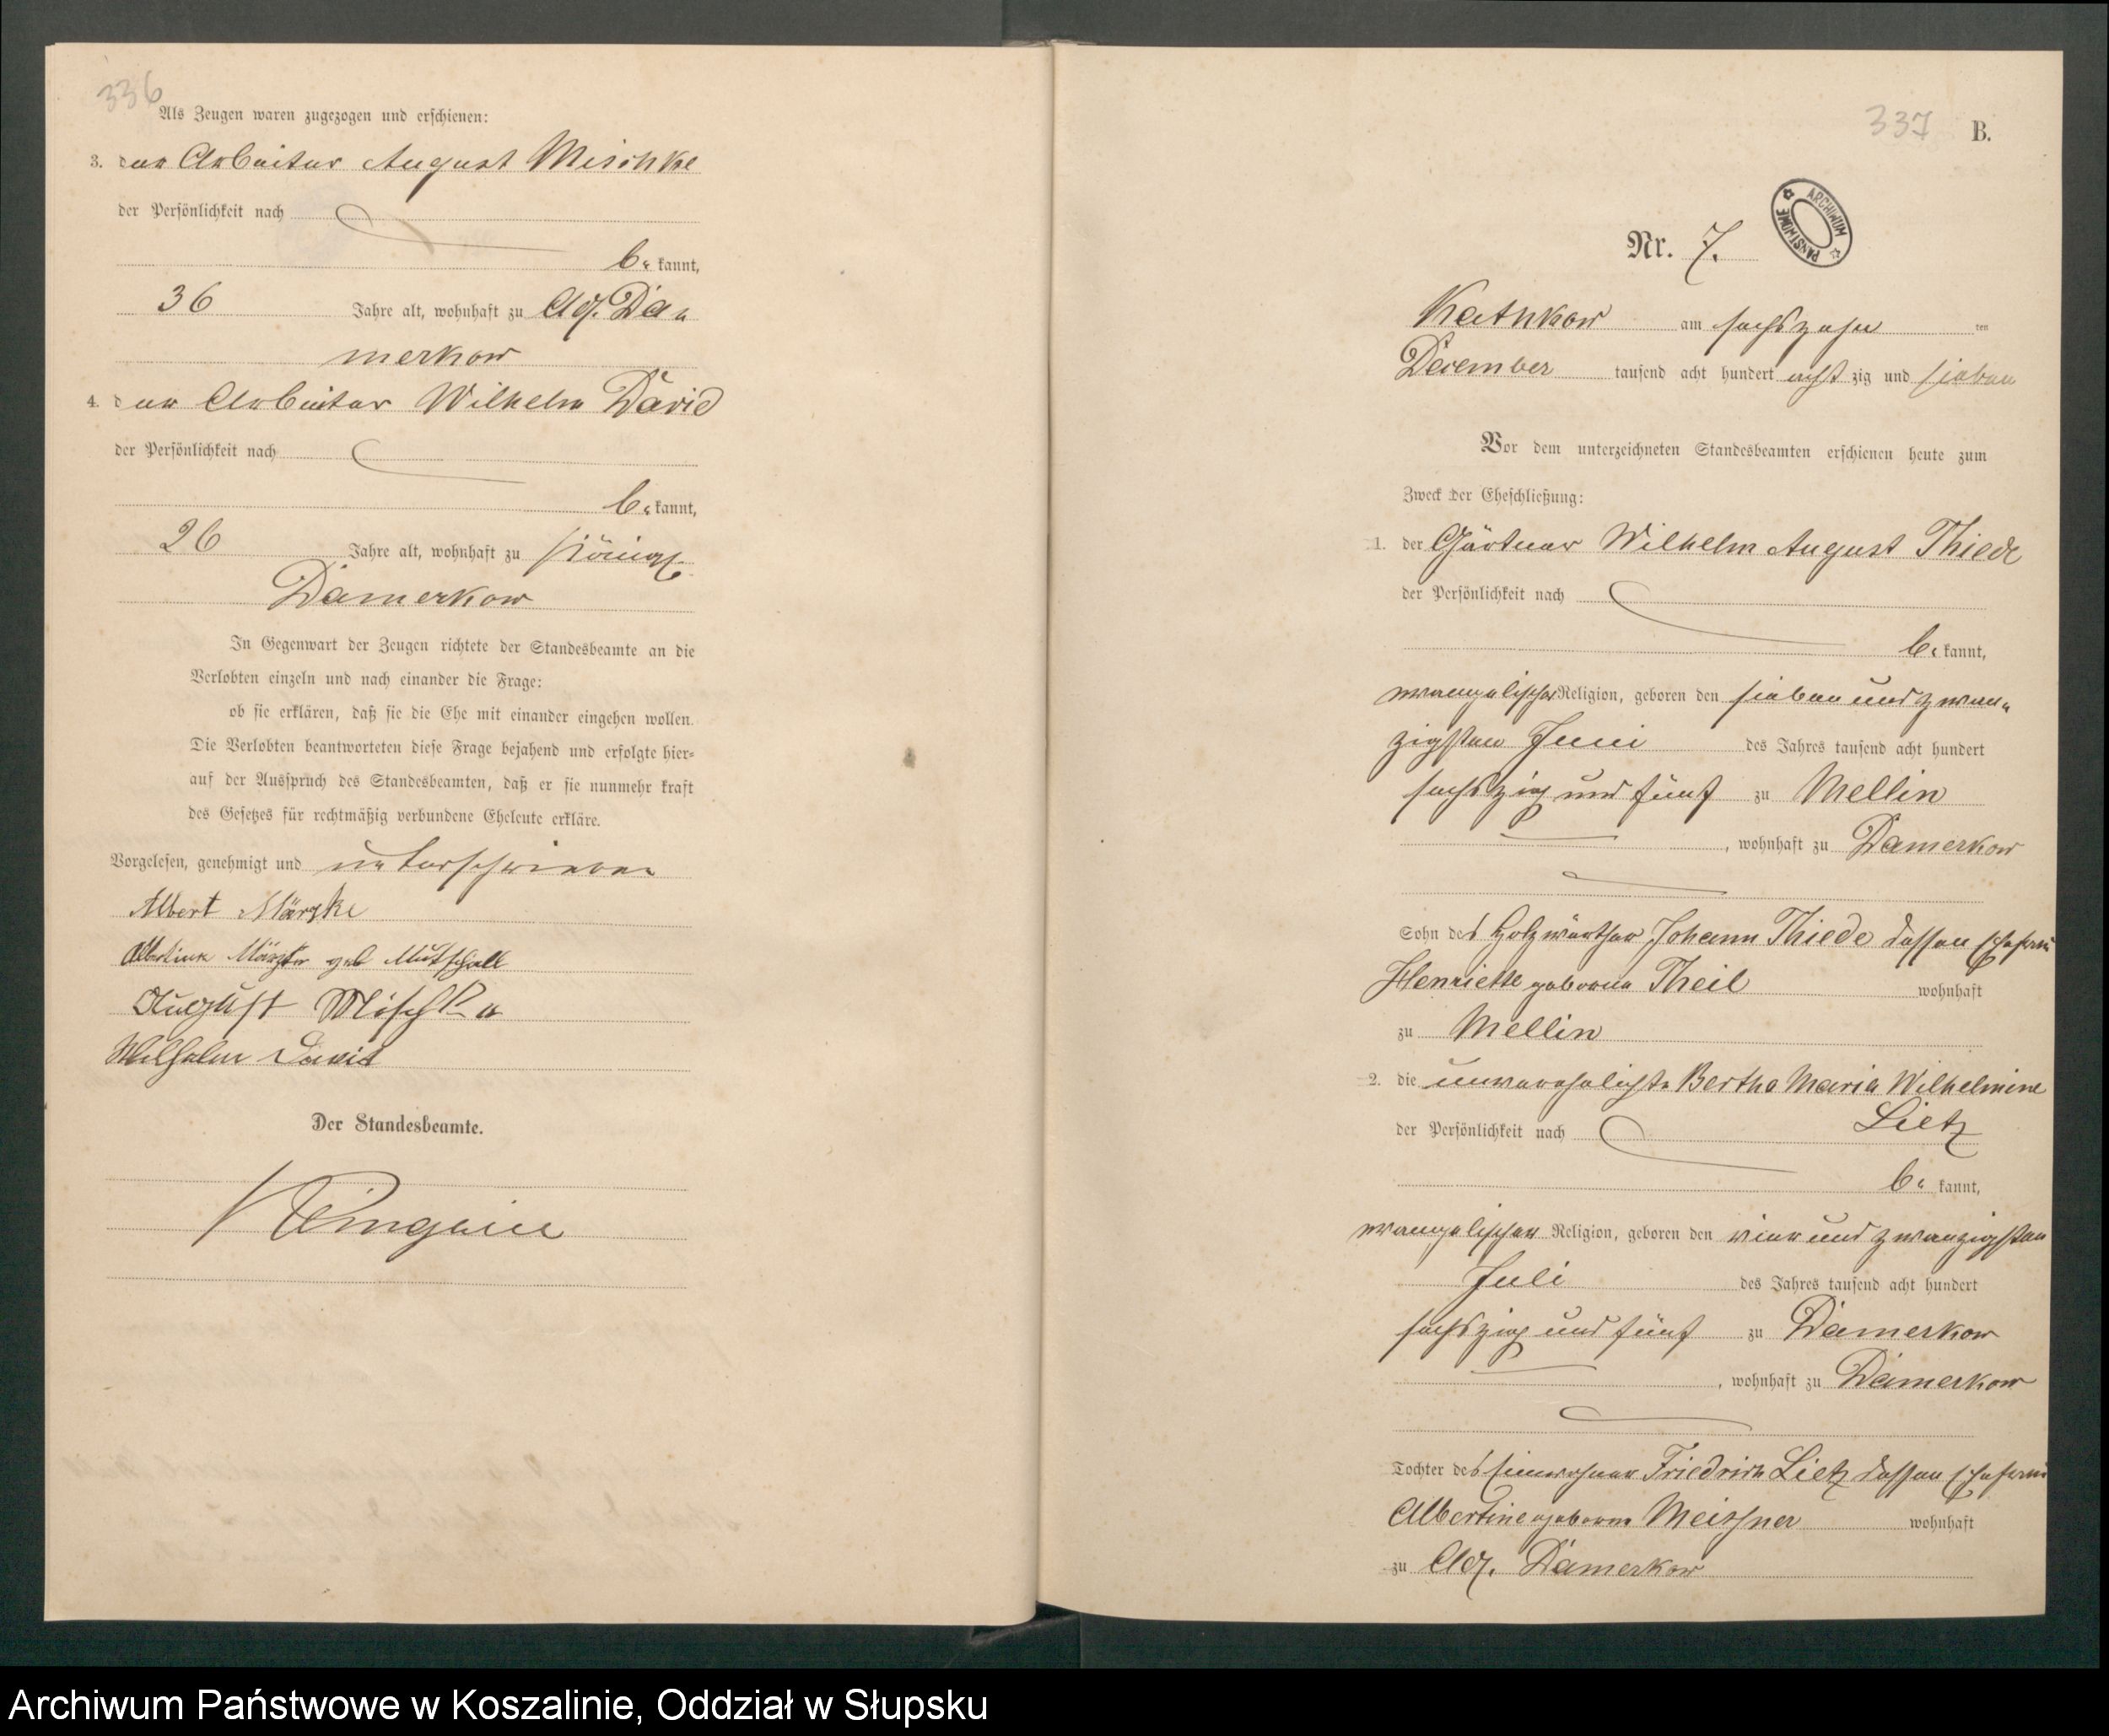 336
Als Zeugen waren zugezogen und erschienen:
3. der Arbeiter August Mischke
der Persönlichkeit nach
be kannt,
36 Jahre alt, wohnhaft zu Adl. Da-
merkow
4. der Arbeiter Wilhelm David
der Persönlichkeit nach
be kannt,
26 Jahre alt, wohnhaft zu Königl.
Damerkow
In Gegenwart der Zeugen richtete der Standesbeamte an die
Verlobten einzeln und nach einander die Frage:
ob sie erklären, daß sie die Ehe mit einander eingehen wollen.
Die Verlobten beantworteten diese Frage bejahend und erfolgte hier-
auf der Ausspruch des Standesbeamten, daß er sie nunmehr kraft
des Gesetzes für rechtmäßig verbundene Eheleute erkläre.
Vorgelesen, genehmigt und unterschrieben
Albert Märzke
Albertine Märzke geb Mutschall
August Mischke
Wilhelm David
Der Standesbeamte.
337 B.
ARCHIWUM PAŃSTWOWE
Nr. 7.
Kathkow am sechszehn ten
December tausend acht hundert acht zig und sieben
Vor dem unterzeichneten Standesbeamten erschienen heute zum
Zweck der Eheschließung:
1. der Gärtner Wilhelm August Thiede
der Persönlichkeit nach
be kannt,
evangelischer Religion, geboren den sieben und zwan-
zigsten Juni des Jahres tausend acht hundert
sechszig und fünf zu Mellin
, wohnhaft zu Damerkow
Sohn des Holzwärther Johann Thiede dessen Ehefrau
Henriette geborene Theil wohnhaft
zu Mellin
2. die unverehelichte Bertha Maria Wilhelmine
der Persönlichkeit nach Lietz
be kannt,
evangelischer Religion, geboren den vier und zwanzigsten
Juli des Jahres tausend acht hundert
sechszig und fünf zu Damerkow
, wohnhaft zu Damerkow
Tochter des Einwohner Friedrich Lietz dessen Ehefrau
Albertine geborne Meissner wohnhaft
zu Adl. Damerkow
Archiwum Państwowe w Koszalinie, Oddział w Słupsku